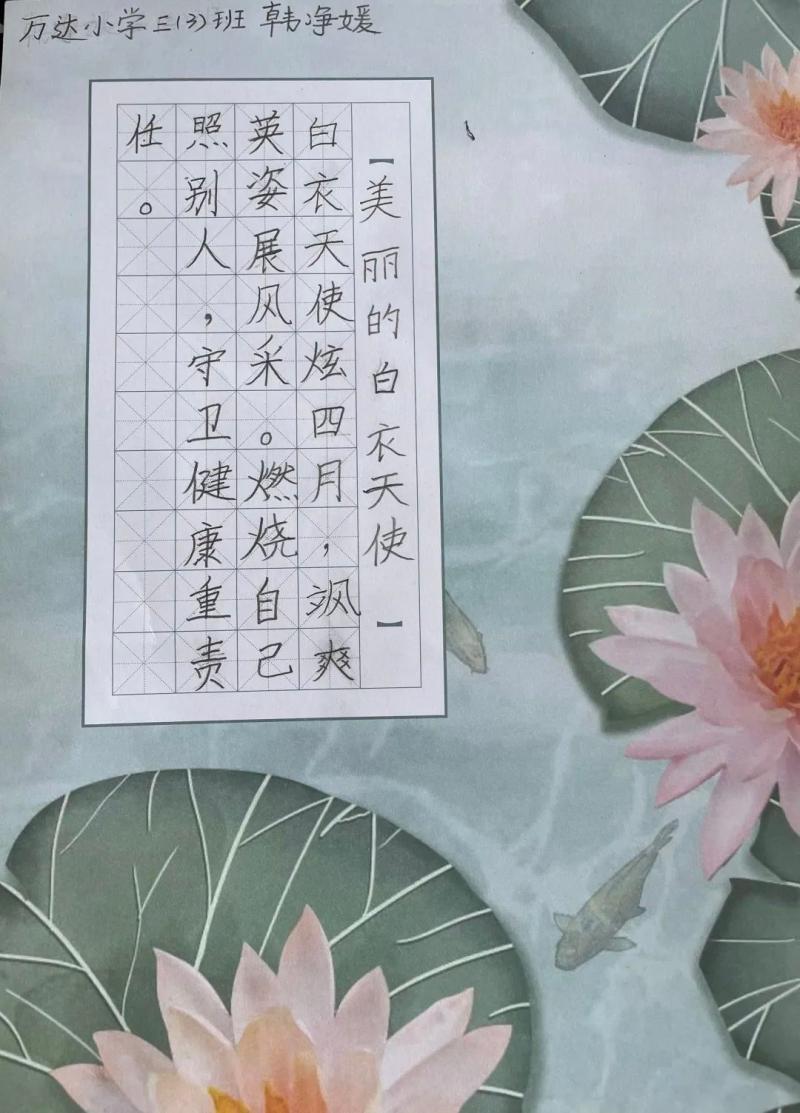 万达小学三(3)班 韩净媛
【美丽的白衣天使】
白衣天使炫四月，飒爽
英姿展风采。燃烧自己
照别人，守卫健康重责
任。